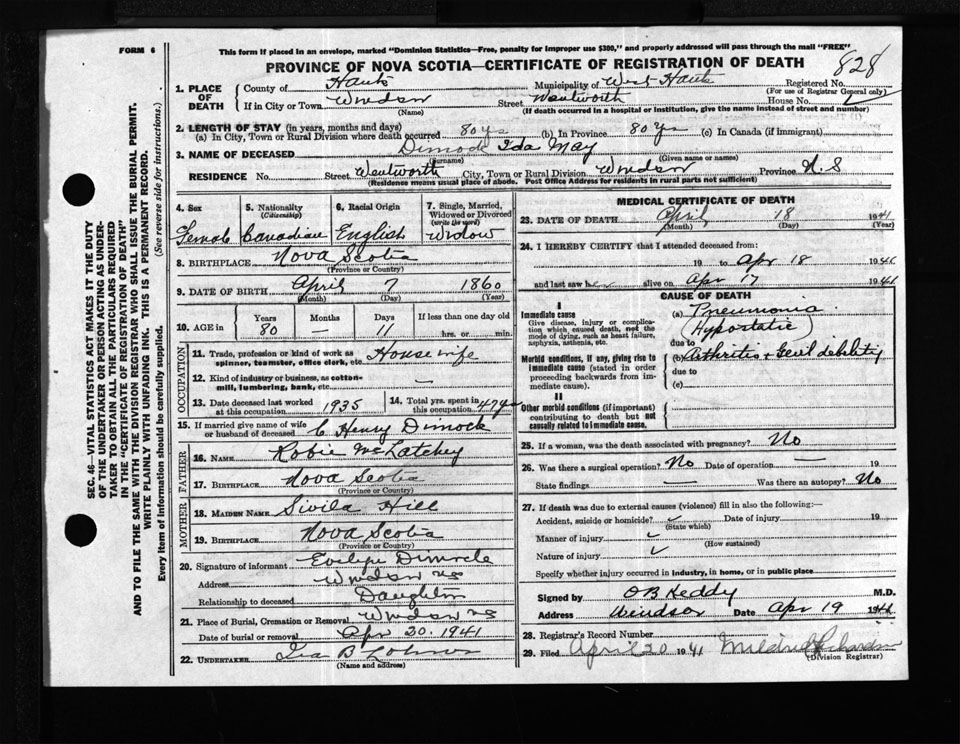 FORM 6
This form if placed in an envelope, marked "Dominion Statistics—Free, penalty for improper use $300," and properly addressed will pass through the mail "FREE"
PROVINCE OF NOVA SCOTIA—CERTIFICATE OF REGISTRATION OF DEATH
828
SEC. 46—VITAL STATISTICS ACT MAKES IT THE DUTY
OF THE UNDERTAKER OR PERSON ACTING AS UNDER-
TAKER TO OBTAIN ALL THE PARTICULARS REQUIRED
IN THE "CERTIFICATE OF REGISTRATION OF DEATH"
AND TO FILE THE SAME WITH THE DIVISION REGISTRAR WHO SHALL ISSUE THE BURIAL PERMIT.
WRITE PLAINLY WITH UNFADING INK. THIS IS A PERMANENT RECORD.
Every item of information should be carefully supplied. (See reverse side for instructions.)
1. PLACE OF DEATH
County of Hants Municipality of West Hants Registered No.
(For use of Registrar General only)
If in City or Town Windsor Street Wentworth House No.
(Name) (If death occurred in a hospital or institution, give the name instead of street and number)
2. LENGTH OF STAY (in years, months and days)
(a) In City, Town or Rural Division where death occurred 80 ys (b) In Province 80 Ys (c) In Canada (if immigrant)
3. NAME OF DECEASED Dimock Ida May
(Surname) (Given name or names)
RESIDENCE No. Street Wentworth City, Town or Rural Division Windsor Province N.S
(Residence means usual place of abode. Post Office Address for residents in rural parts not sufficient)
4. Sex Female
5. Nationality (Citizenship) Canadian
6. Racial Origin English
7. Single, Married, Widowed or Divorced (write the word) Widow
8. BIRTHPLACE Nova Scotia
(Province or Country)
9. DATE OF BIRTH April 7 1860
(Month) (Day) (Year)
10. AGE in Years 80 Months — Days 11 If less than one day old hrs. or min.
OCCUPATION
11. Trade, profession or kind of work as spinner, teamster, office clerk, etc. House wife
12. Kind of industry or business, as cotton-mill, lumbering, bank, etc. —
13. Date deceased last worked at this occupation 1935
14. Total yrs. spent in this occupation 47 yrs
15. If married give name of wife or husband of deceased C Henry Dimock
FATHER
16. NAME Robie McLatchey
17. BIRTHPLACE Nova Scotia
(Province or Country)
MOTHER
18. MAIDEN NAME Sivila Hill
19. BIRTHPLACE Nova Scotia
(Province or Country)
20. Signature of informant Evelyn Dimock
Address Windsor NS
Relationship to deceased Daughter
21. Place of Burial, Cremation or Removal Windsor NS
Date of burial or removal Apr 20. 1941
22. UNDERTAKER Ira B
(Name and address)
MEDICAL CERTIFICATE OF DEATH
23. DATE OF DEATH April 18 1941
(Month) (Day) (Year)
24. I HEREBY CERTIFY that I attended deceased from:
19 to Apr 18 19
and last saw her alive on Apr 17 19
CAUSE OF DEATH
I
Immediate cause
Give disease, injury or complication which caused death, not the mode of dying, such as heart failure, asphyxia, asthenia, etc.
Morbid conditions, if any, giving rise to immediate cause (stated in order proceeding backwards from immediate cause).
II
Other morbid conditions (if important) contributing to death but not causally related to immediate cause.
(a) Pneumonia
(Hypostatic)
due to
(b) Arthritis + Genl debility
due to
(c)
25. If a woman, was the death associated with pregnancy? No
26. Was there a surgical operation? No Date of operation — 19
State findings — Was there an autopsy? No
27. If death was due to external causes (violence) fill in also the following:—
Accident, suicide or homicide? Date of injury 19
(State which)
Manner of injury
(How sustained)
Nature of injury
Specify whether injury occurred in industry, in home, or in public place
Signed by O B Keddy M.D.
Address Windsor Date Apr 19 19
28. Registrar's Record Number
29. Filed April 20 1941 Mildred
(Division Registrar)